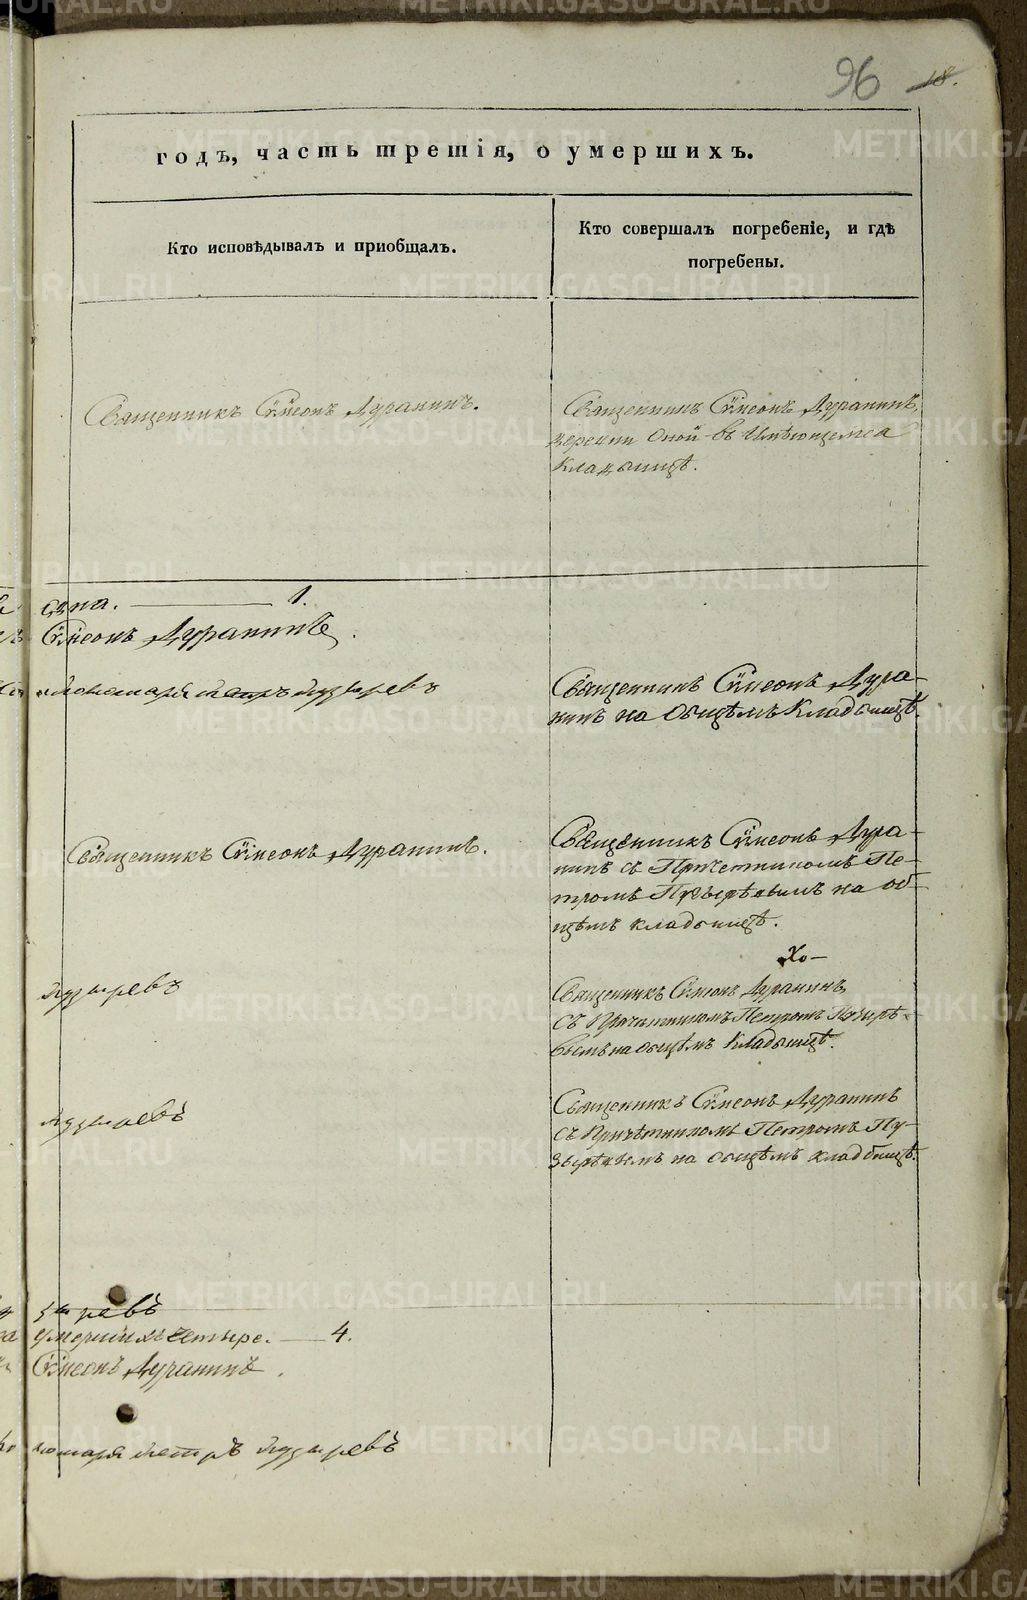 96 18.
годъ, часть третія, о умершихъ.
Кто исповѣдывалъ и приобщалъ.
Кто совершалъ погребеніе, и гдѣ
погребены.
Священникъ Сѵмеонъ Дуранинъ.
Священникъ Сѵмеонъ Дуранинъ,
церкви Оной въ Имѣющемся
Кладбищѣ.
една. — 1.
Сѵмеонъ Дуранинъ.
Петръ Пузыревъ
Священникъ Сѵмеонъ Дура-
нинъ на Общемъ Кладбищѣ.
Священникъ Сѵмеонъ Дуранинъ.
Священникъ Сѵмеонъ Дура-
нинъ съ Причетникомъ Пе-
тромъ Пузыревымъ на об-
щемъ кладбищѣ.
Хо-
Пузыревъ
Священникъ Сѵмеонъ Дуранинъ
съ Причетникомъ Петромъ Пузыре-
вымъ на общемъ Кладбищѣ.
Пузыревъ
Священникъ Сѵмеонъ Дуранинъ
съ Причетникомъ Петромъ Пу-
зыревымъ на общемъ кладбищѣ.
зыревъ
умершихъ четыре. — 4.
Сѵмеонъ Дуранинъ.
номаря Петръ Пузыревъ
METRIKI.GASO-URAL.RU